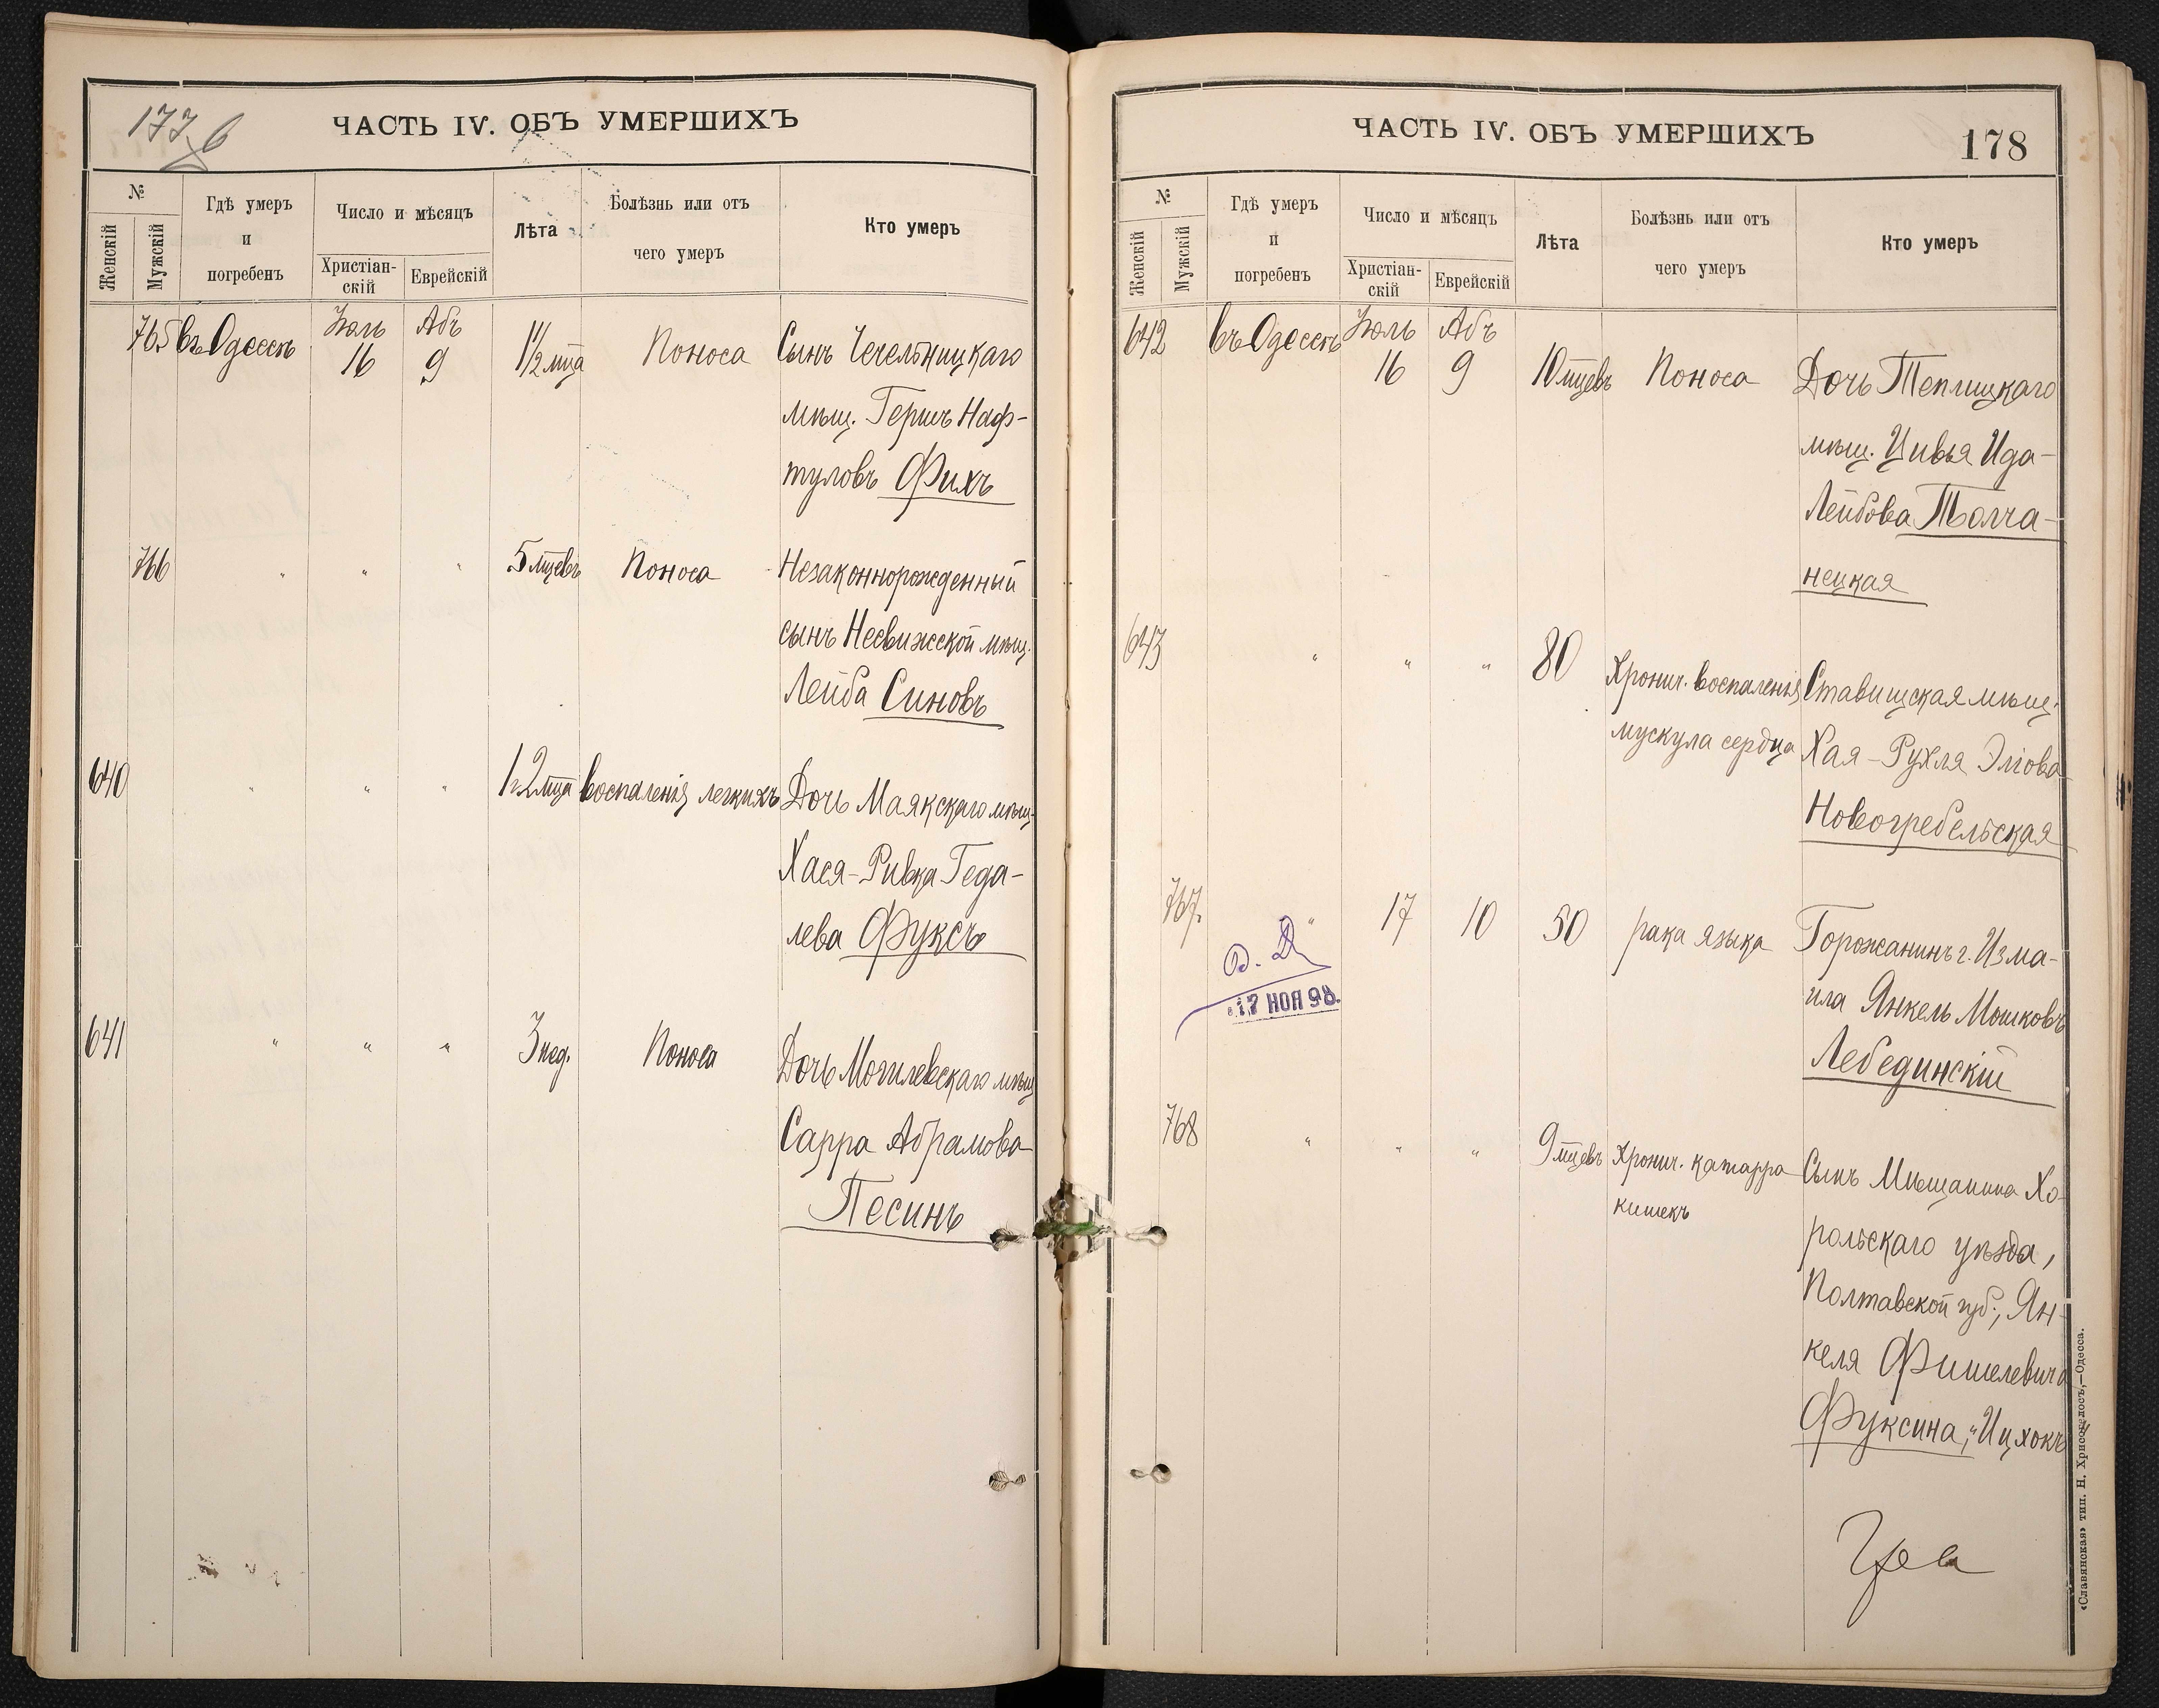 177 б
ЧАСТЬ IV. ОБЪ УМЕРШИХЪ
№
Женскій
Мужскій
Гдѣ умеръ
и
погребенъ
Число и мѣсяцъ
Христіан-
скій
Еврейскій
Лѣта
Болѣзнь или отъ
чего умеръ
Кто умеръ
765 въ Одессѣ Іюль 16 Абъ 9 1 1/2 мца Поноса Сынъ Чечельницкаго
мѣщ. Гершъ Наф-
туловъ Фихъ
766 " " " 5 мцевъ Поноса Незаконнорожденный
сынъ Несвижской мѣщ.
Лейба Синовъ
640 " " " 1г. 2 мца воспаленія легкихъ Дочь Маякскаго мѣщ.
Хася-Ривка Геда-
лева Фуксъ
641 " " " 3 нед. Поноса Дочь Могилевскаго мѣщ
Сарра Абрамова
Песинъ
ЧАСТЬ IV. ОБЪ УМЕРШИХЪ
178
№
Женскій
Мужскій
Гдѣ умеръ
и
погребенъ
Число и мѣсяцъ
Христіан-
скій
Еврейскій
Лѣта
Болѣзнь или отъ
чего умеръ
Кто умеръ
642 въ Одессѣ Іюль 16 Абъ 9 10 мцевъ Поноса Дочь Теплицкаго
мѣщ. Цивья Ида-
Лейбова Толча-
нецкая
643 " " " 80 Хронич. воспаленія Ставищская мѣщ.
мускула сердца Хая-Рухля Эліова
Новогребельская
767. " 17 10 50 рака языка Горожанинъ г. Изма-
ила Янкель Мошковъ
Лебединскій
17 НОЯ 98.
768 " " " 9 мцевъ Хронич. катарра Сынъ Мѣщанина Хо-
кишекъ
рольскаго уѣзда,
Полтавской губ., Ян-
келя Фишелевича
Фуксина, "Ицхокъ"
«Славянская» тип. Н. Хрисогелосъ,—Одесса.